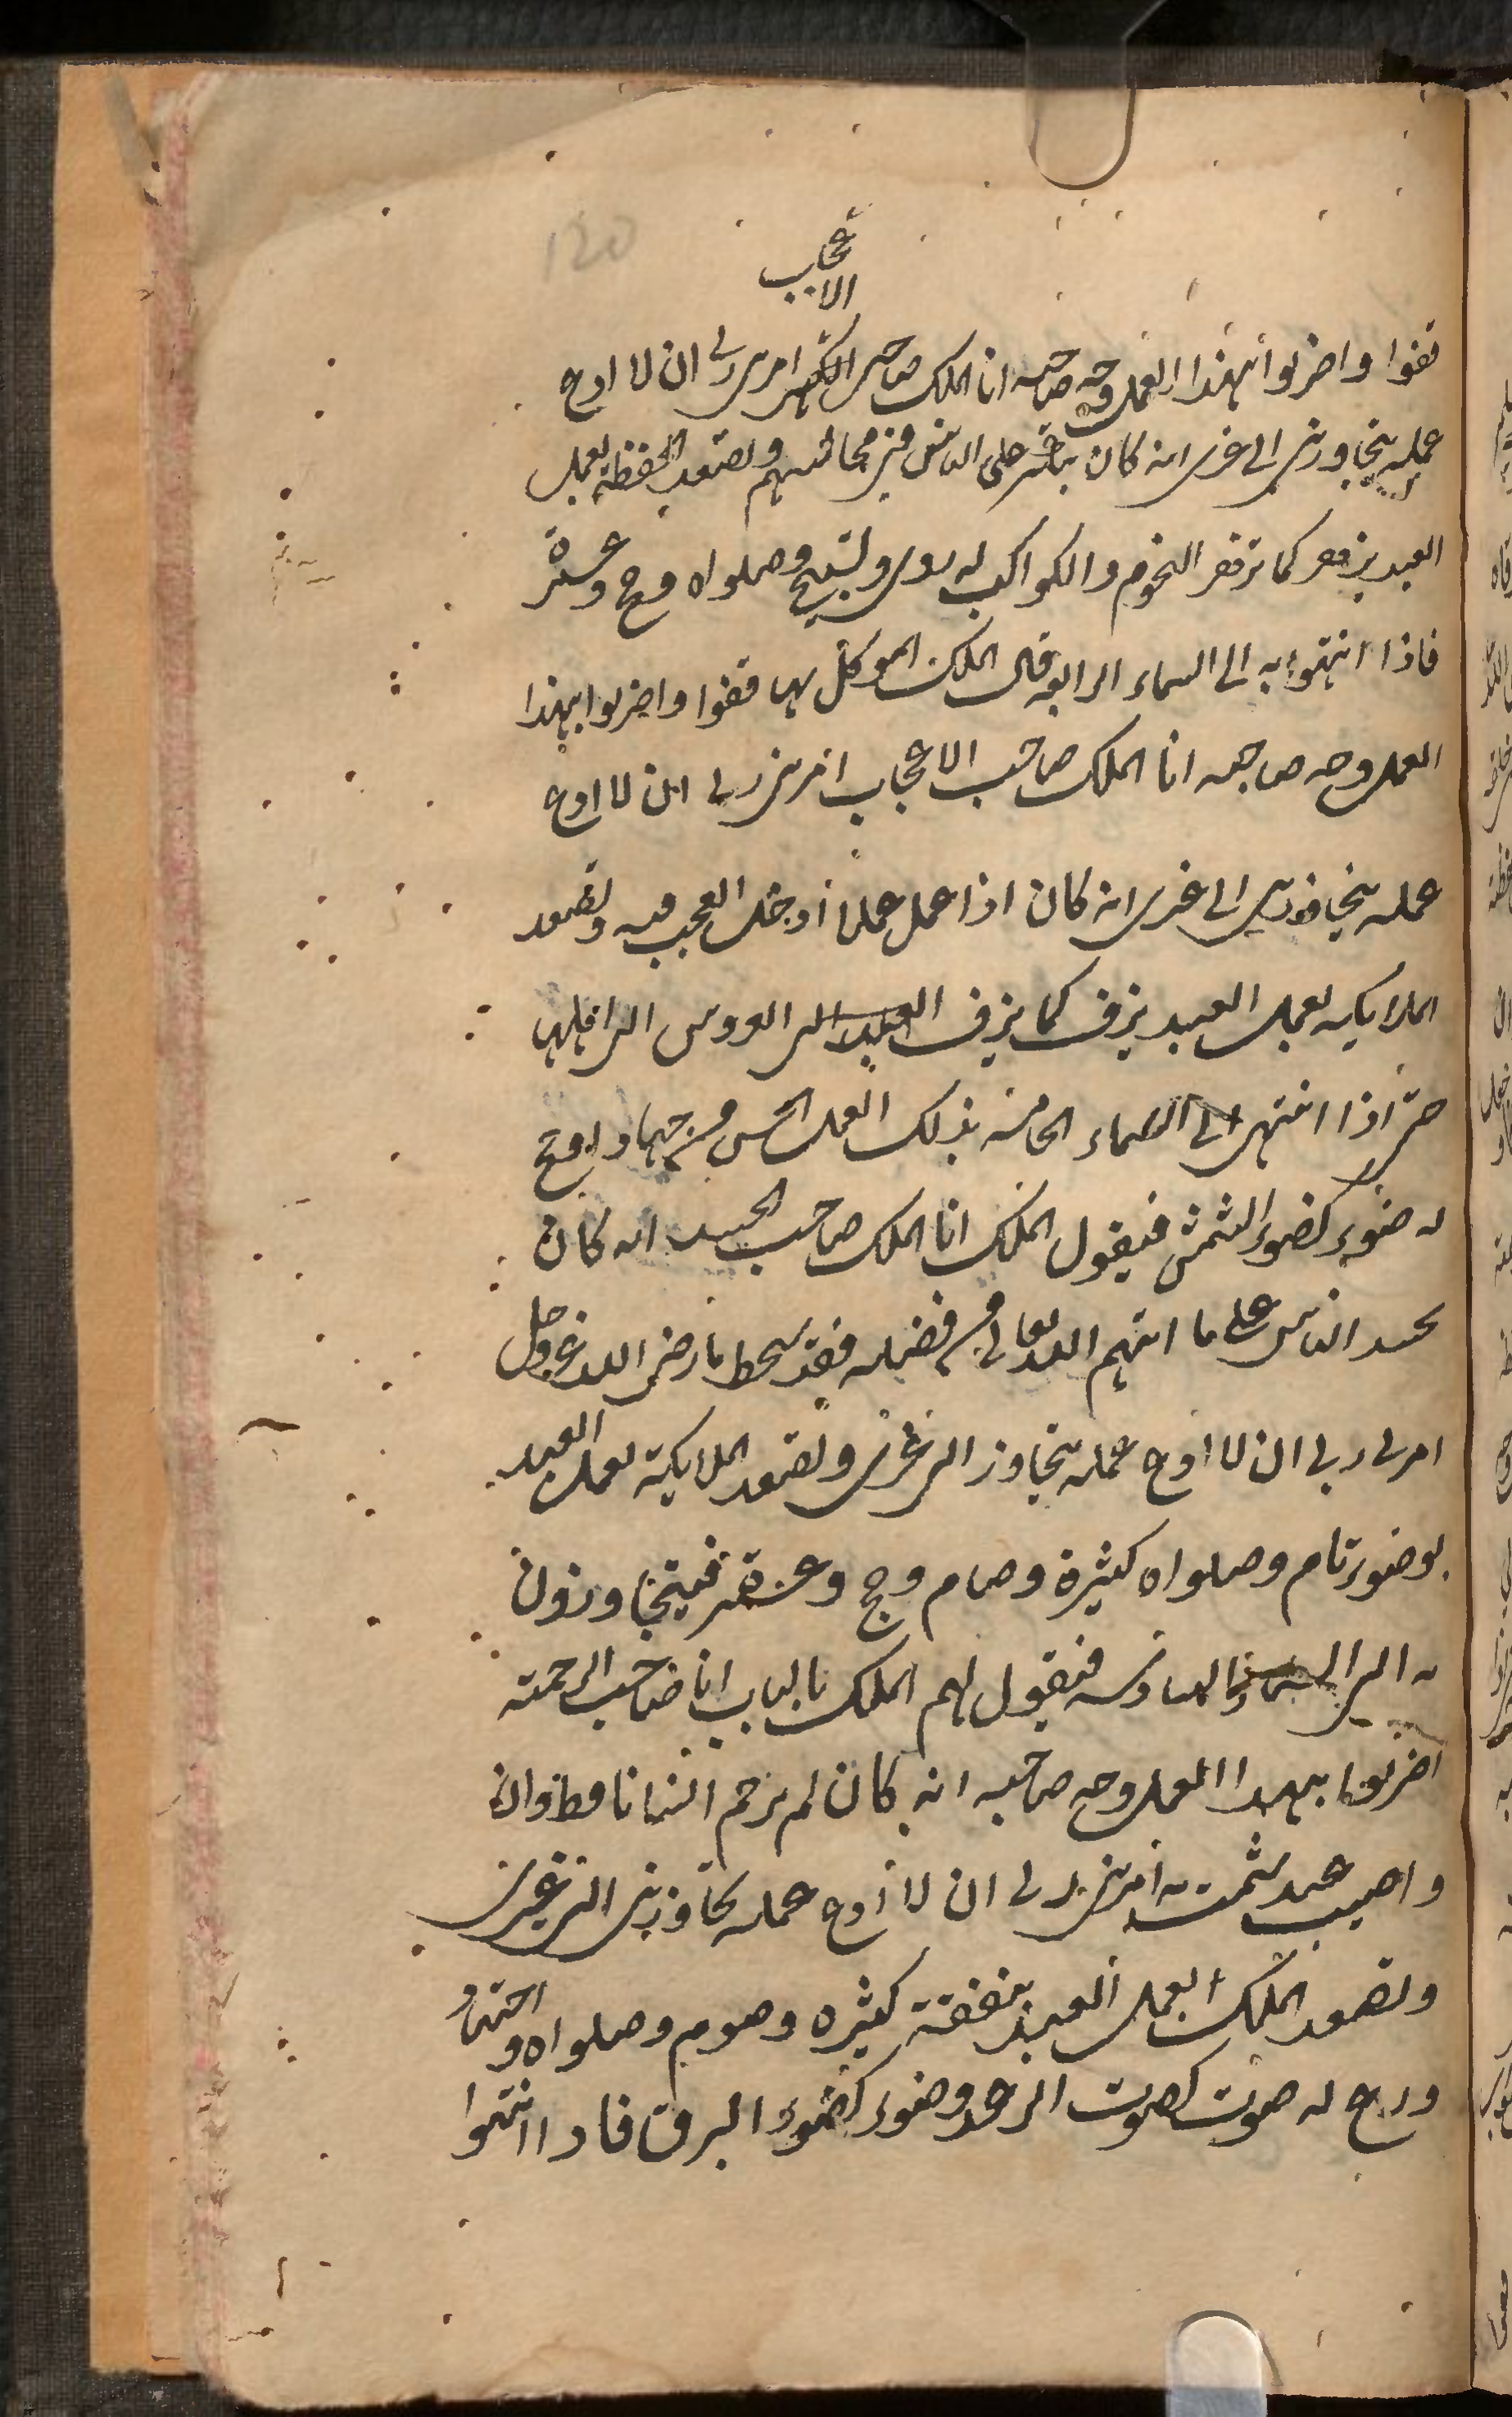 120
الاعجاب
قفوا واضربوا بهذا العمل وجه صاحبه انا الملك صاحب الكبر امرنى ربى ان لا ادع
عمله يتجاوزنى الى غيرى انه كان يتكبر على الناس فى مجالسهم وتصعد الحفظة بعمل
العبد يزهر كما تزهر النجوم والكواكب له دوى وتسبيح وصلواة وحج وعمرة
فاذا انتهوا به الى السماء الرابعة قال الملك الموكل بها قفوا واضربوا بهذا
العمل وجه صاحبه انا الملك صاحب الاعجاب امرنى ربى ان لا ادع
عمله يتجاوزنى الى غيرى انه كان اذا عمل عملا ادخل العجب فيه وتصعد
الملايكه بعمل العبد يزف كما يزف العروس الى اهلها
حتى اذا انتهى الى السماء الخامسة بذلك العمل الحسن من جهاد وحج
له ضوء كضوء الشمس فيقول الملك انا الملك صاحب الحسد انه كان
يحسد الناس على ما اتيهم الله تعالى من فضله فقد سخط ما رضى الله عز وجل
امرنى ربى ان لا ادع عمله يتجاوز الى غيرى وتصعد الملايكة بعمل العبد
بوضوء تام وصلواة كثيرة وصيام وحج وعمرة فيتجاوزون
به الى السماء السادسه فيقول لهم الملك بالباب انا صاحب الرحمة
اضربوا بهذا العمل وجه صاحبه انه كان لم يرحم انسانا قط وان
واصيب عبد شمت به امرنى ربى ان لا ادع عمله يجاوزنى الى غيرى
وتصعد الملك بعمل العبد بنفقة كثيره وصوم وصلواة واجتهاد
وورع له صوت كصوت الرعد وضوء كضوء البرق فاذا انتهوا